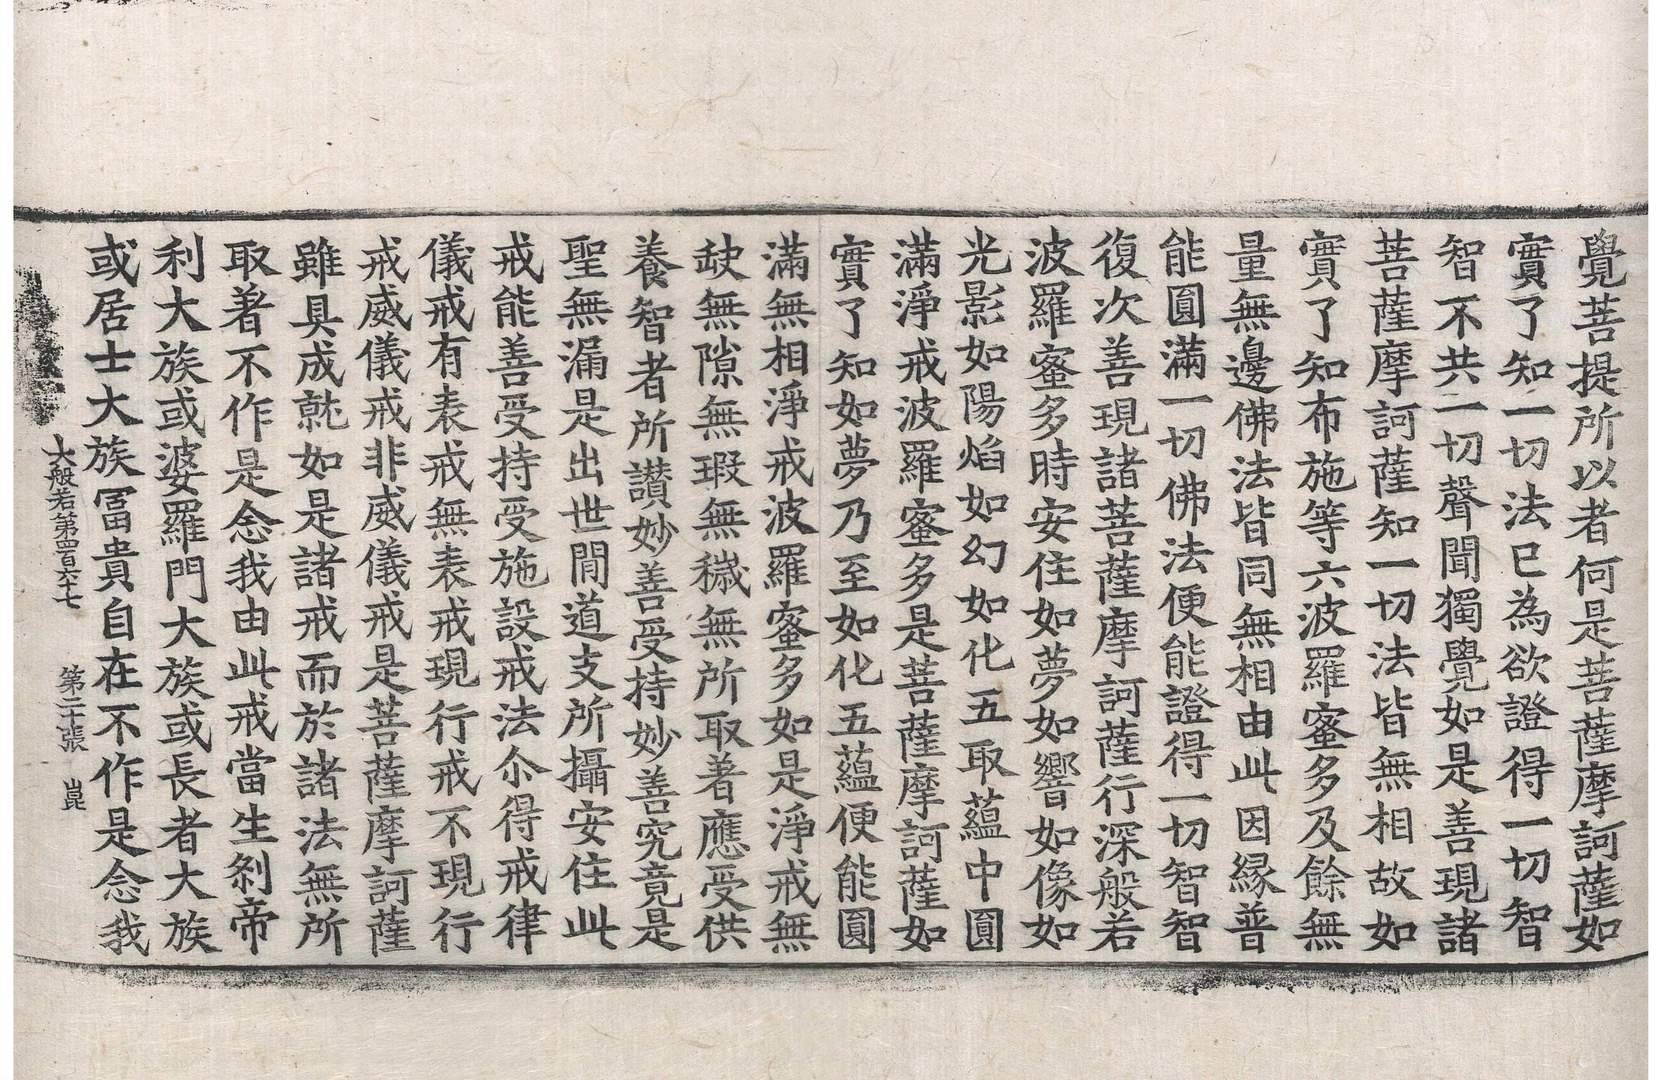 覺菩提所以者何是菩薩摩訶薩如
實了知一切法已為欲證得一切智
智不共一切聲聞獨覺如是善現諸
菩薩摩訶薩知一切法皆無相故如
實了知布施等六波羅蜜多及餘無
量無邊佛法皆同無相由此因緣普
能圓滿一切佛法便能證得一切智智
復次善現諸菩薩摩訶薩行深般若
波羅蜜多時安住如夢如響如像如
光影如陽焰如幻如化五取蘊中圓
滿淨戒波羅蜜多是菩薩摩訶薩如
實了知如夢乃至如化五蘊便能圓
滿無相淨戒波羅蜜多如是淨戒無
𡙇無隙無瑕無穢無所取著應受供
養智者所讃妙善受持妙善究竟是
聖無漏是出世閒道支所攝安住此
戒能善受持受施設戒法尒得戒律
儀戒有表戒無表戒現行戒不現行
戒威儀戒非威儀戒是菩薩摩訶薩
雖具成就如是諸戒而於諸法無所
取著不作是念我由此戒當生剎帝
利大族或婆羅門大族或長者大族
或居士大族冨貴自在不作是念我
大般若第四百六十七 第二十張 崑